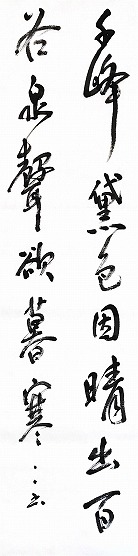 千峰黛色因晴出百
谷泉聲欲暮寒